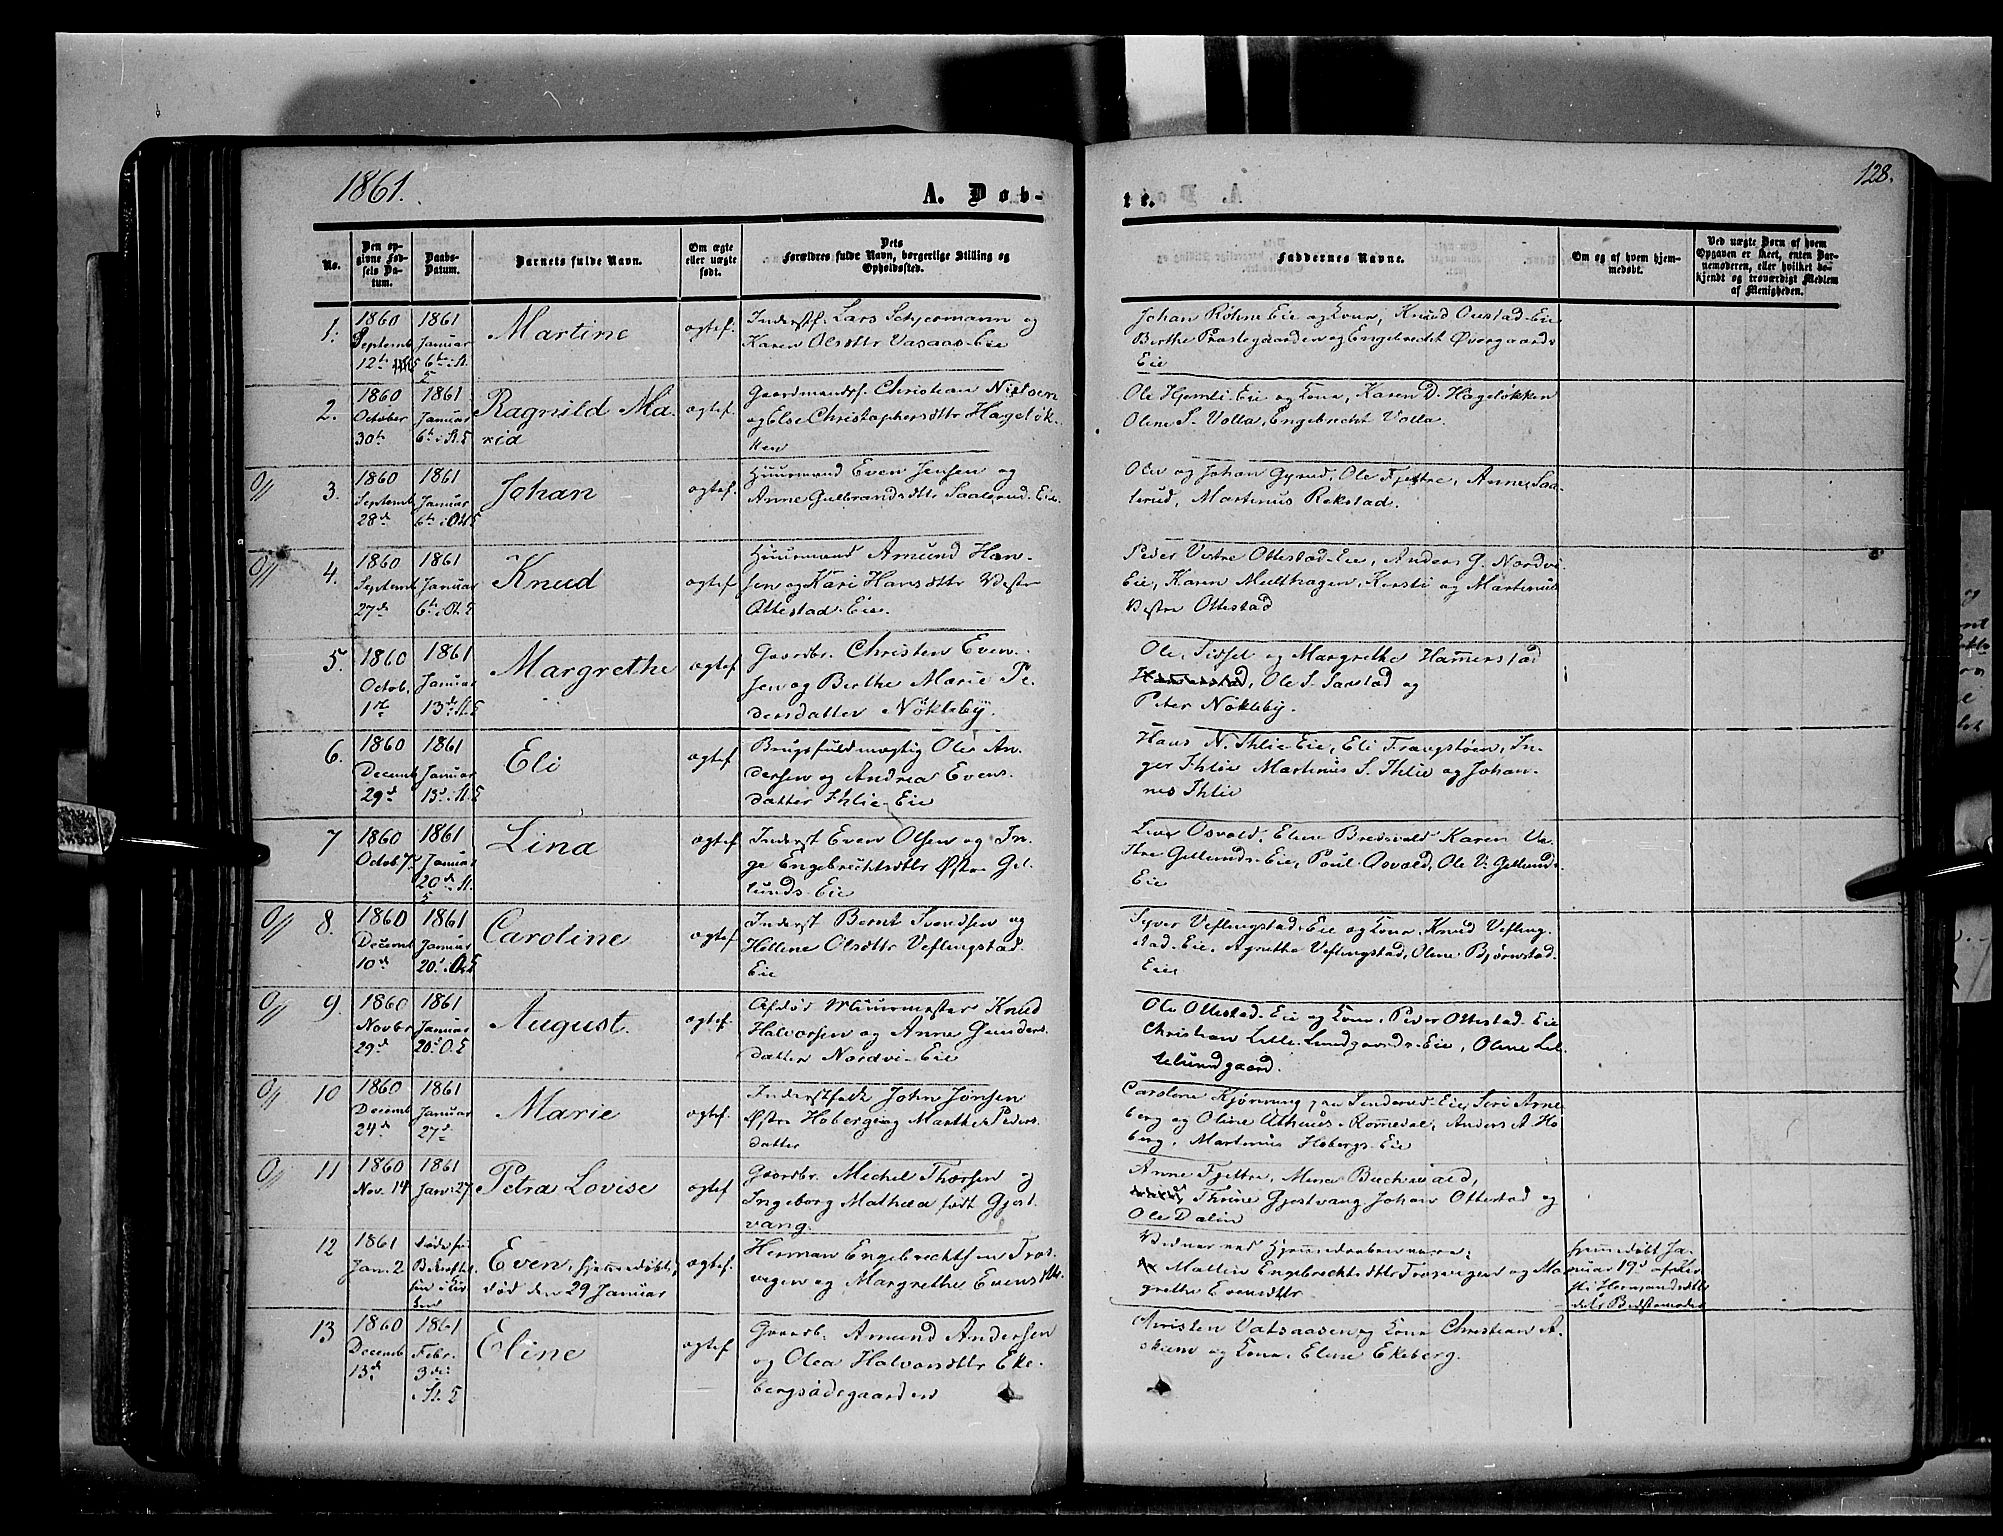 1861.
A. Døb-
te.
128.
No.
Den op-
givne Fød-
sels Da-
tum.
Daabs-
Datum.
Barnets fulde Navn.
Om ægte
eller uægte
født.
Dets
Forældres fulde Navn, borgerlige Stilling og
Opholdssted.
Faddernes Navne.
Om og af hvem hjem-
medøbt.
Ved uægte Børn af hvem
Opgaven er skeet, enten Bar-
nemoderen, eller hvilket be-
kjendt og troværdigt Medlem
af Menigheden.
1.
1860
Septemb
12te
1861
Januar
6te i St.
Martine
ægtef.
Inderstf. Lars Schjermann og
Karen Olsdttr Vasaas-Eie
Johan Røhne Eie og Kone, Knud Ousstad-Eie
Berthe Prostegaarden og Engebrecht Øvergaards
Eie
2.
1860
October
30te
1861
Januar
6te i St. E
Ragnild Ma-
rid
ægtef.
Gaardmandsf. Christian Nielsen
og Else Christophersdttr Hageløk-
ken
Ole Hjemli-Eie og Kone, Karen D. Hageløkken
Olene S. Volla, Engebrecht Volla.
3.
1860
Septemb
28de
1861
Januar
6te i Ot. E
Johan
ægtef.
Huusmand Even Jensen og
Anne Gulbrandsdttr Saalerud-Eie
Ole og Johan Gyrud, Ole Fjetre, Anne Saa-
lerud, Martinus Rekstad.
4.
1860
Septemb
27de
1861
Januar
6te i Ot. E
Knud
ægtef
Huusmand Amund Han-
sen og Kari Hansdttr Vestre
Ottestad-Eie.
Peder Vestre Ottestad-Eie, Anders G. Nordvi-
Eie, Karen Multhagen, Kersti og Martinus
Vestre Ottestad
5.
1860
Octob.
1ste
1861
Januar
13de St. E
Margrethe
ægtef
Gaardbr. Christen Even-
sen og Berthe Marie Pe-
dersdatter Nökleby.
Ole, Sidsel og Margrethe Hamerstad
Ole S. Saastad og
Peter Nökleby.
6.
1860
Decemb
29de
1861
Januar
13de St. E
Eli
ægtef
Brugsfuldmægtig Ole An-
dersen og Andrea Evens-
datter Ihlie-Eie
Hans N. Ihlie-Eie, Eli Frangstøen, In-
ger Ihlie Martinus S. Ihlie og Johan-
nes Ihlie
7
1860
Octob. 7
1861
Januar
20de St.
E
Lina
ægtef
Inderst Even Olsen og In-
ge Engebrechtsdttr Østre Gil-
lunds-Eie
Osvold, Eline Bredvold Karen Ve-
stre Gillunds-Eie, Paul Osvold, Ole V. Gillund-
Eie
8.
1860
Decemb
10de
1861
Januar
20de i Ot. E
Caroline
ægtef.
Inderst Bernt Svendsen og
Hellene Olsdttr Veflingstad-
Eie
Syver Veflingstad-Eie og Kone, Knud Vefling-
stad-Eie, Agnethe Veflingstad, Olene Bjørnstad-
Eie
9.
1860
Novbr
29de
1861
Januar
20de O. E
August.
ægtef.
Afdød Muurmester Knud
Halvorsen og Anne Gunders-
datter Nordvi-Eie
Ole Ottestad-Eie og Kone, Peder Ottestad-Eie
Christian Lille-Lundgaards-Eie, Olene Lil-
lelundgaard.
10
1860
Decemb
24de
1861
Januar
27de
Marie
ægtef.
Inderstfolk John Jonsen
Østre Hoberg og Marthe Peders-
datter
Caroline Kjønning paa Sinderud-Eie, Siri Arne-
berg og Oline Athnus-Romedal, Anders A. Ho-
berg, Martinus Hobergs-Eie
11
1860
Nov. 14
1861
Jan. 27
Petra Lovise
ægtef
Gaardbr. Mechel Thorsen og
Ingeborg Mathea født Gjøst-
vang.
Anne Fjetre, Mina Buchwald,
Thrine Gjøstvang Johan Ottestad og
Ole Dalin
12
1861
Jan. 2
Døde før
Bekræftel-
sen i Kir-
ken
Even, hjemmedøbt,
død den 29 Januar
ægtef
Herman Engebrechtsen Tros-
vigen og Margrethe Evensdttr
Vidner ved Hjemmedaaben vare:
Mallin Engebrechtsdttr Trosvigen og Ma-
grethe Evensdttr
hjemmedøbt Ja-
nuar 19de af Ker-
sti Hermandsdttr
dets Bedstemoder
13
1860
Decemb
13de
1861
Febr.
3die
St. E
Eline
ægtef
Gaardb. Amund Andersen
og Olea Halvorsdttr Eke-
bergsødegaarden
Christen Vatsaasen og Kone Christian A-
skum og Kone, Eline Ekeberg.